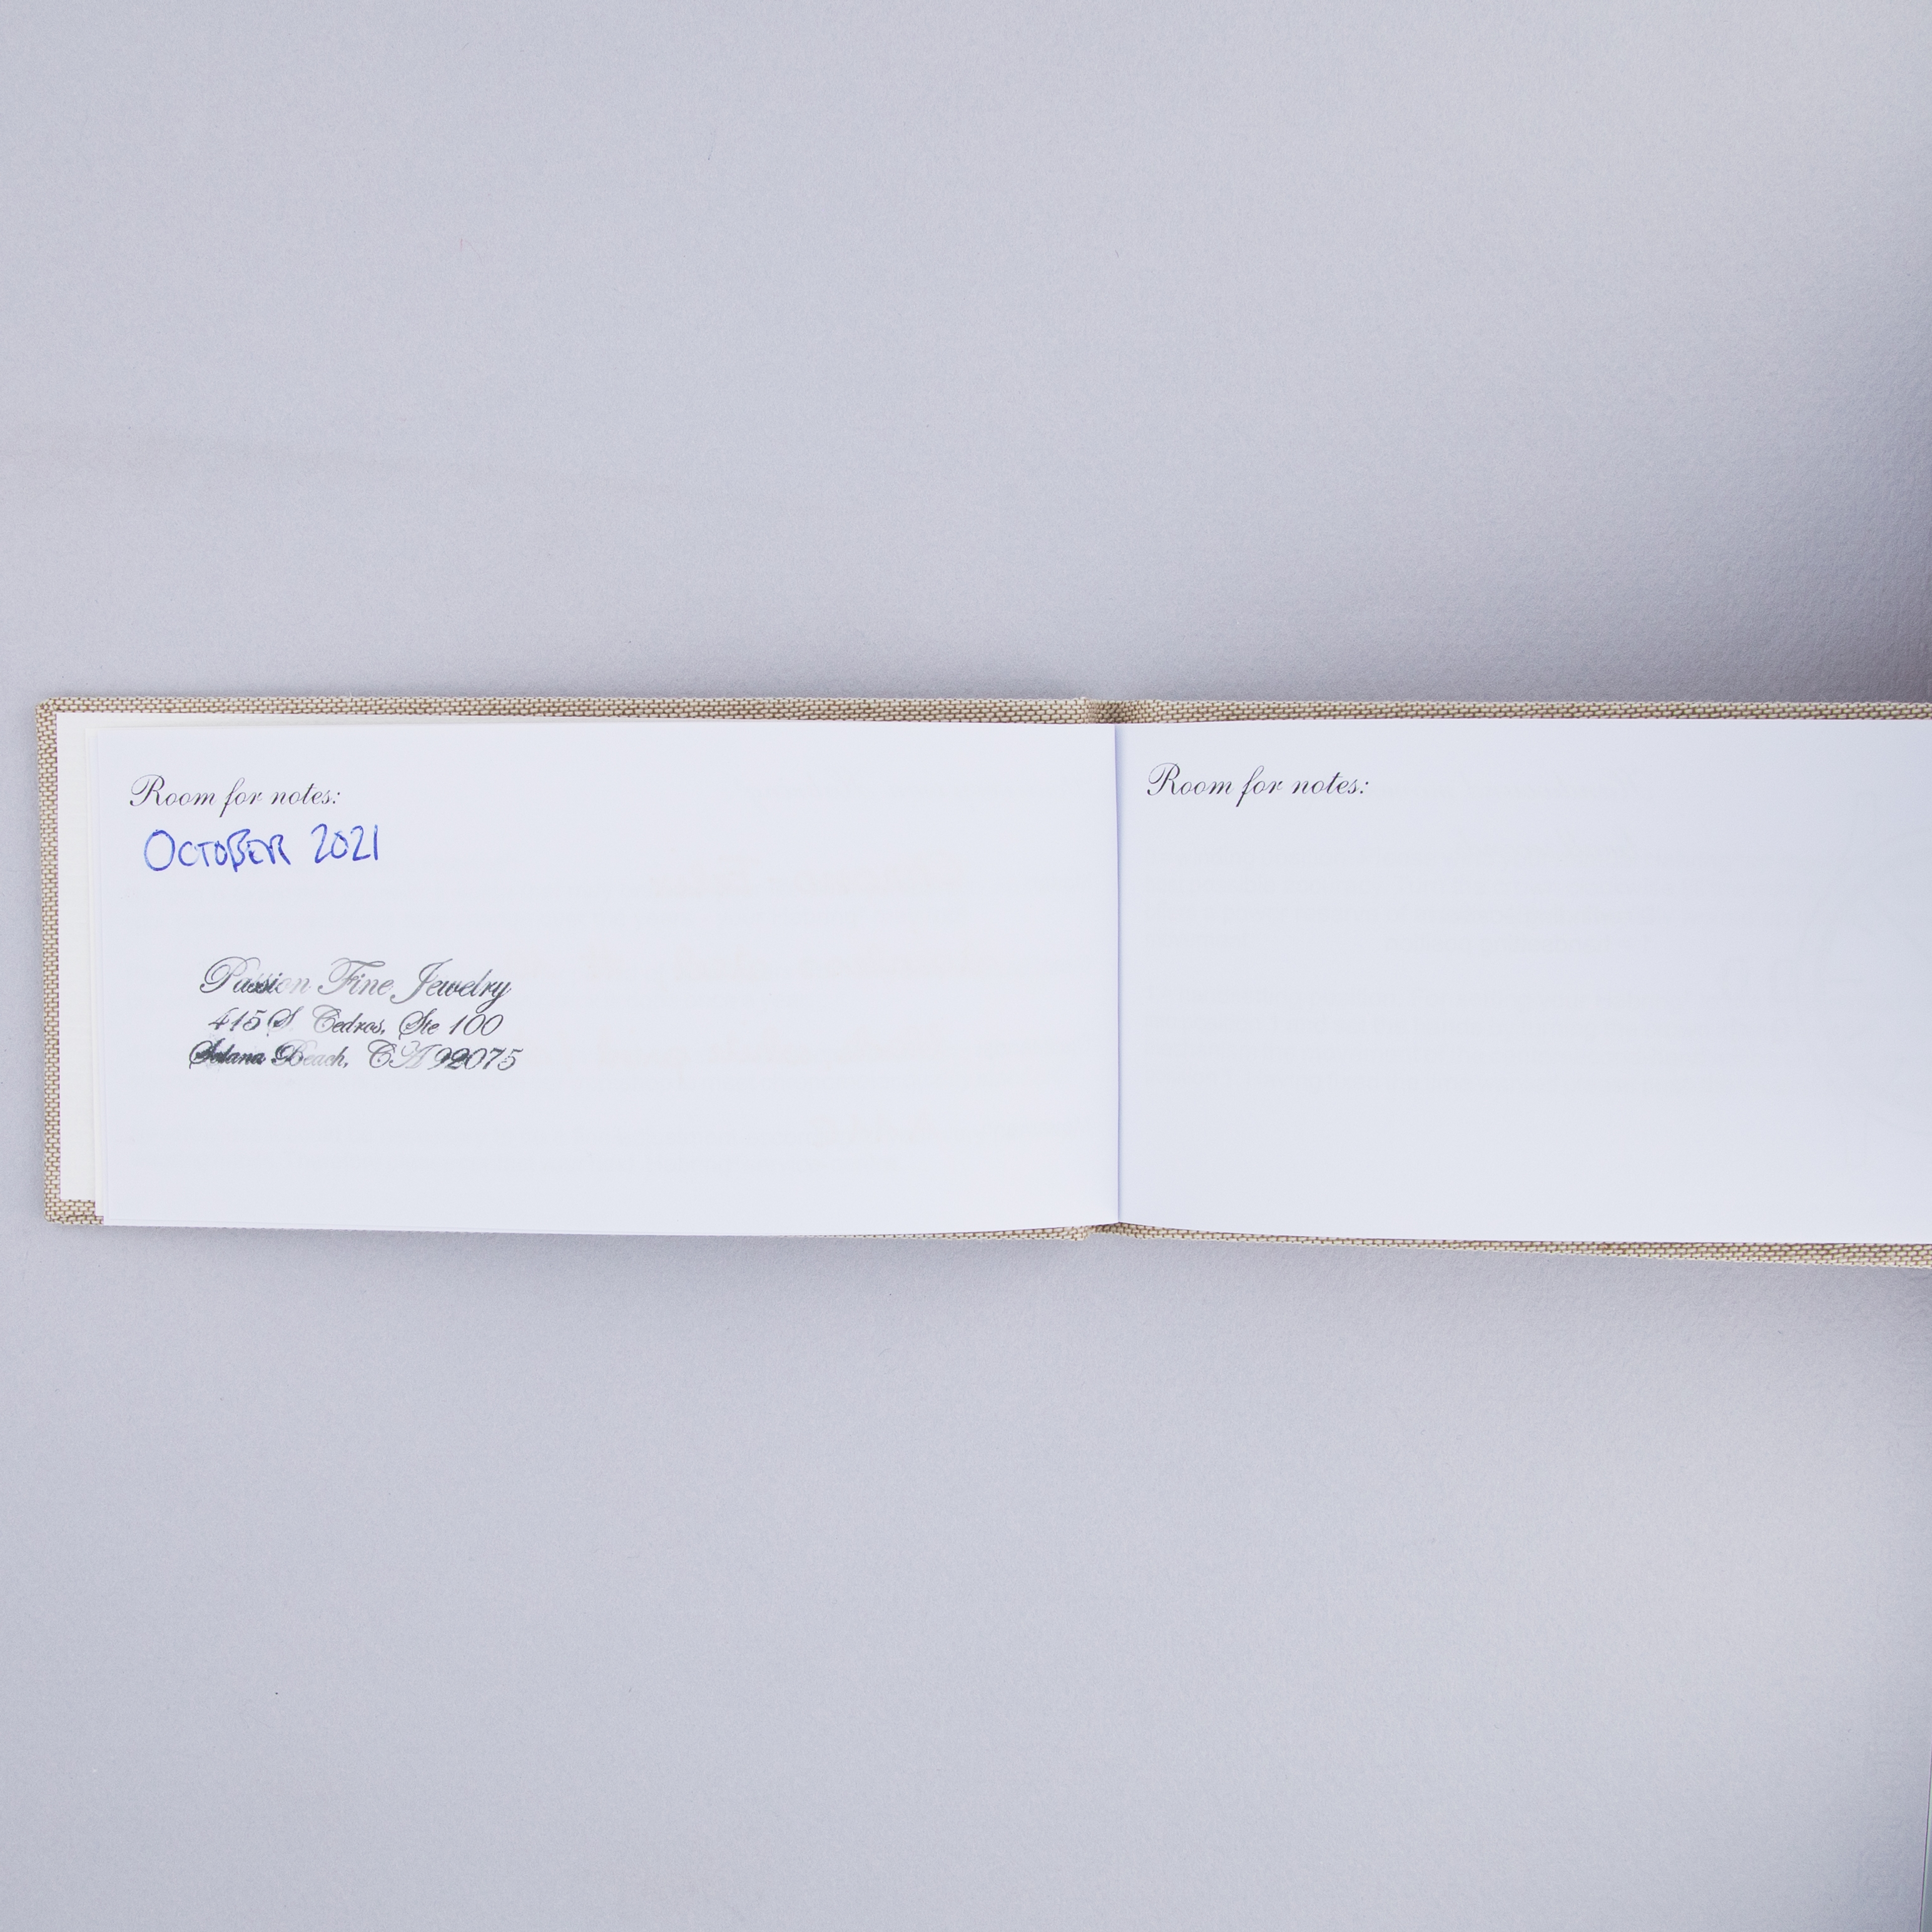 Room for notes:
OCTOBER 2021
Passion Fine Jewelry
415 S. Cedros, Ste 100
Solana Beach, CA 92075
Room for notes: